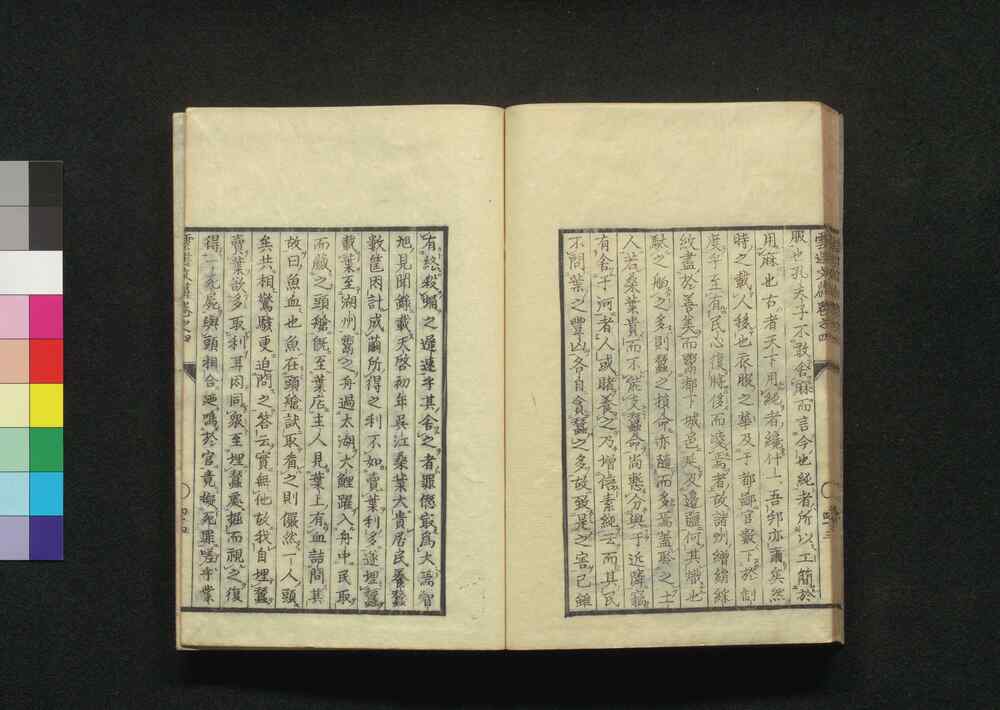 服也孔夫子不敢舍麻而言今也純者所以工簡於
用麻也古者天下用純者纔什上吾邦亦爾矣然
時之載人移也衣服之華及于都鄙官數下於制
度乎至有民心復脒侈而凌焉者故諸州繒絹綵
紋盡於善矣而鬻都下城邑足及邊疆何其熾也
駄之舶之多則蠶之損命亦隨而多焉蓋聚之土
人若桑葉貴而不能支蠶命尚愍分與于近隣竊
有舍于河者人或賭養之乃增倍素純云而其民
不問葉之豐凶各自貪蠶之多故致是之害已雖
有慾殺蝠之遲速乎其舍之者罪愆最爲大焉智
旭見聞錄載天啓初年吳江桑葉大貴居民養蠶
數筐因計成繭所得之利不如賣葉利多遂埋蠶
載葉至湖州鬻之舟過太湖大鯉躍入舟中民取
而藏之頭艙旣至葉店主人見葉上有血詰問其
故曰魚血也魚在頭艙試取看之則儼然一人頭
矣共相驚駭更迫問之答云實無他故我自埋蠶
賣葉欲多取利耳因同衆至埋蠶處掘而視之復
得一死屍與頭相合迺鳴於官竟擬死罪嗟乎業